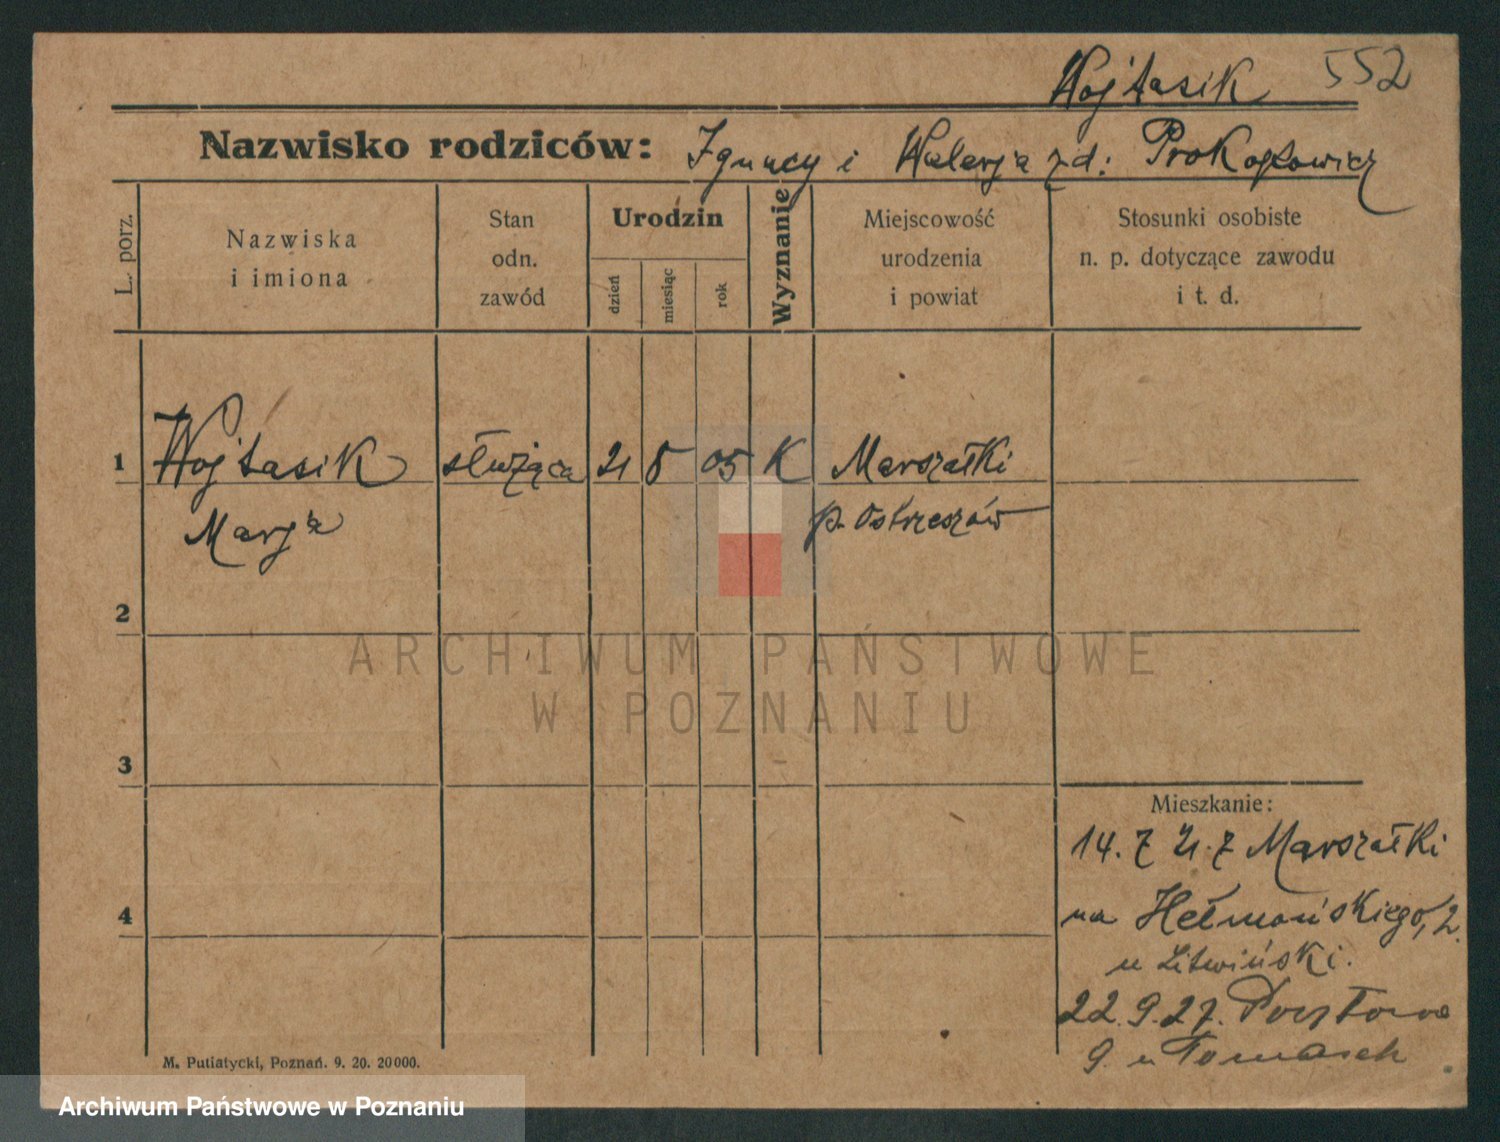 Wojtasik 552
Nazwisko rodziców: Ignacy i Walerja zd:
L. porz.
Nazwiska
i imiona
Stan
odn.
zawód
Urodzin
dzień
miesiąc
rok
Wyznanie
Miejscowość
urodzenia
i powiat
Stosunki osobiste
n. p. dotyczące zawodu
i t. d.
1 Wojtasik służąca 21 8 05 K Marszałki
Marja p. Ostrzeszów
2
3
4
Mieszkanie:
14. 7 21. z Marszałki
na Hetmańskiego, 2.
u Litwiński.
22. 9. 27. Pocztowa
9. u Tomasch
M. Putiatycki, Poznań. 9. 20. 20000.
ARCHIWUM PAŃSTWOWE
W POZNANIU
Archiwum Państwowe w Poznaniu